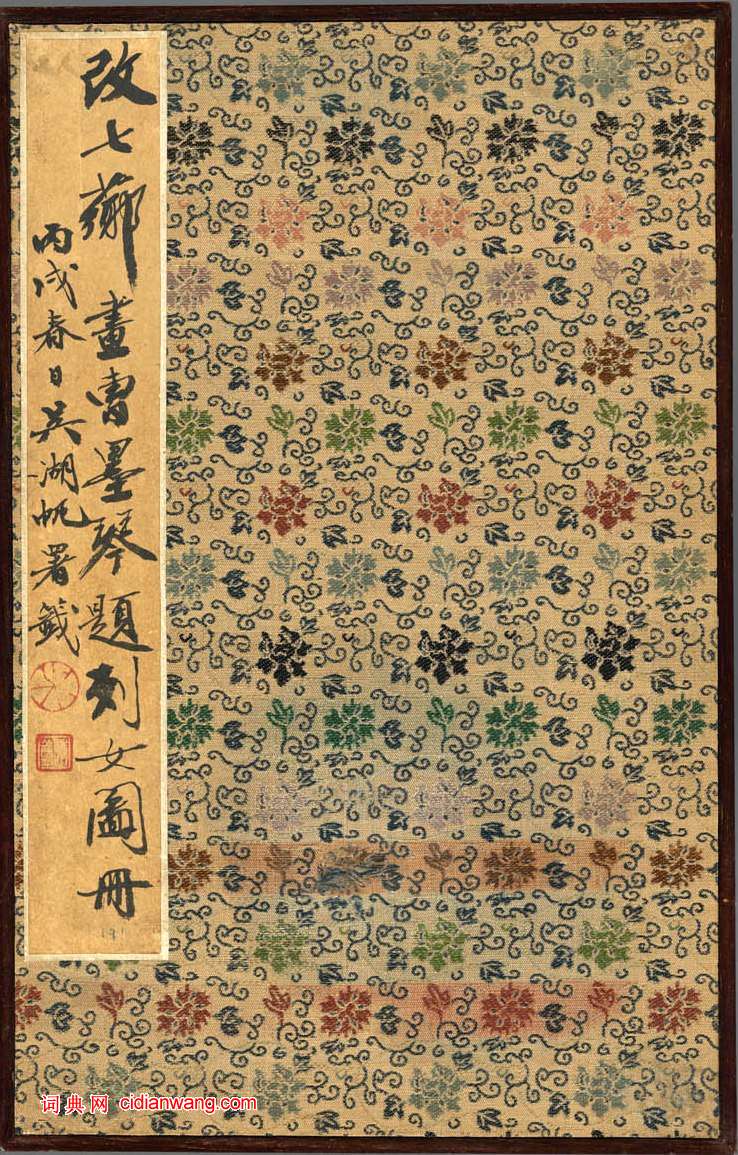 改七薌畫曹墨琴題列女圖冊
丙戌春日吳湖帆署籤
191
词典网 cidianwang.com